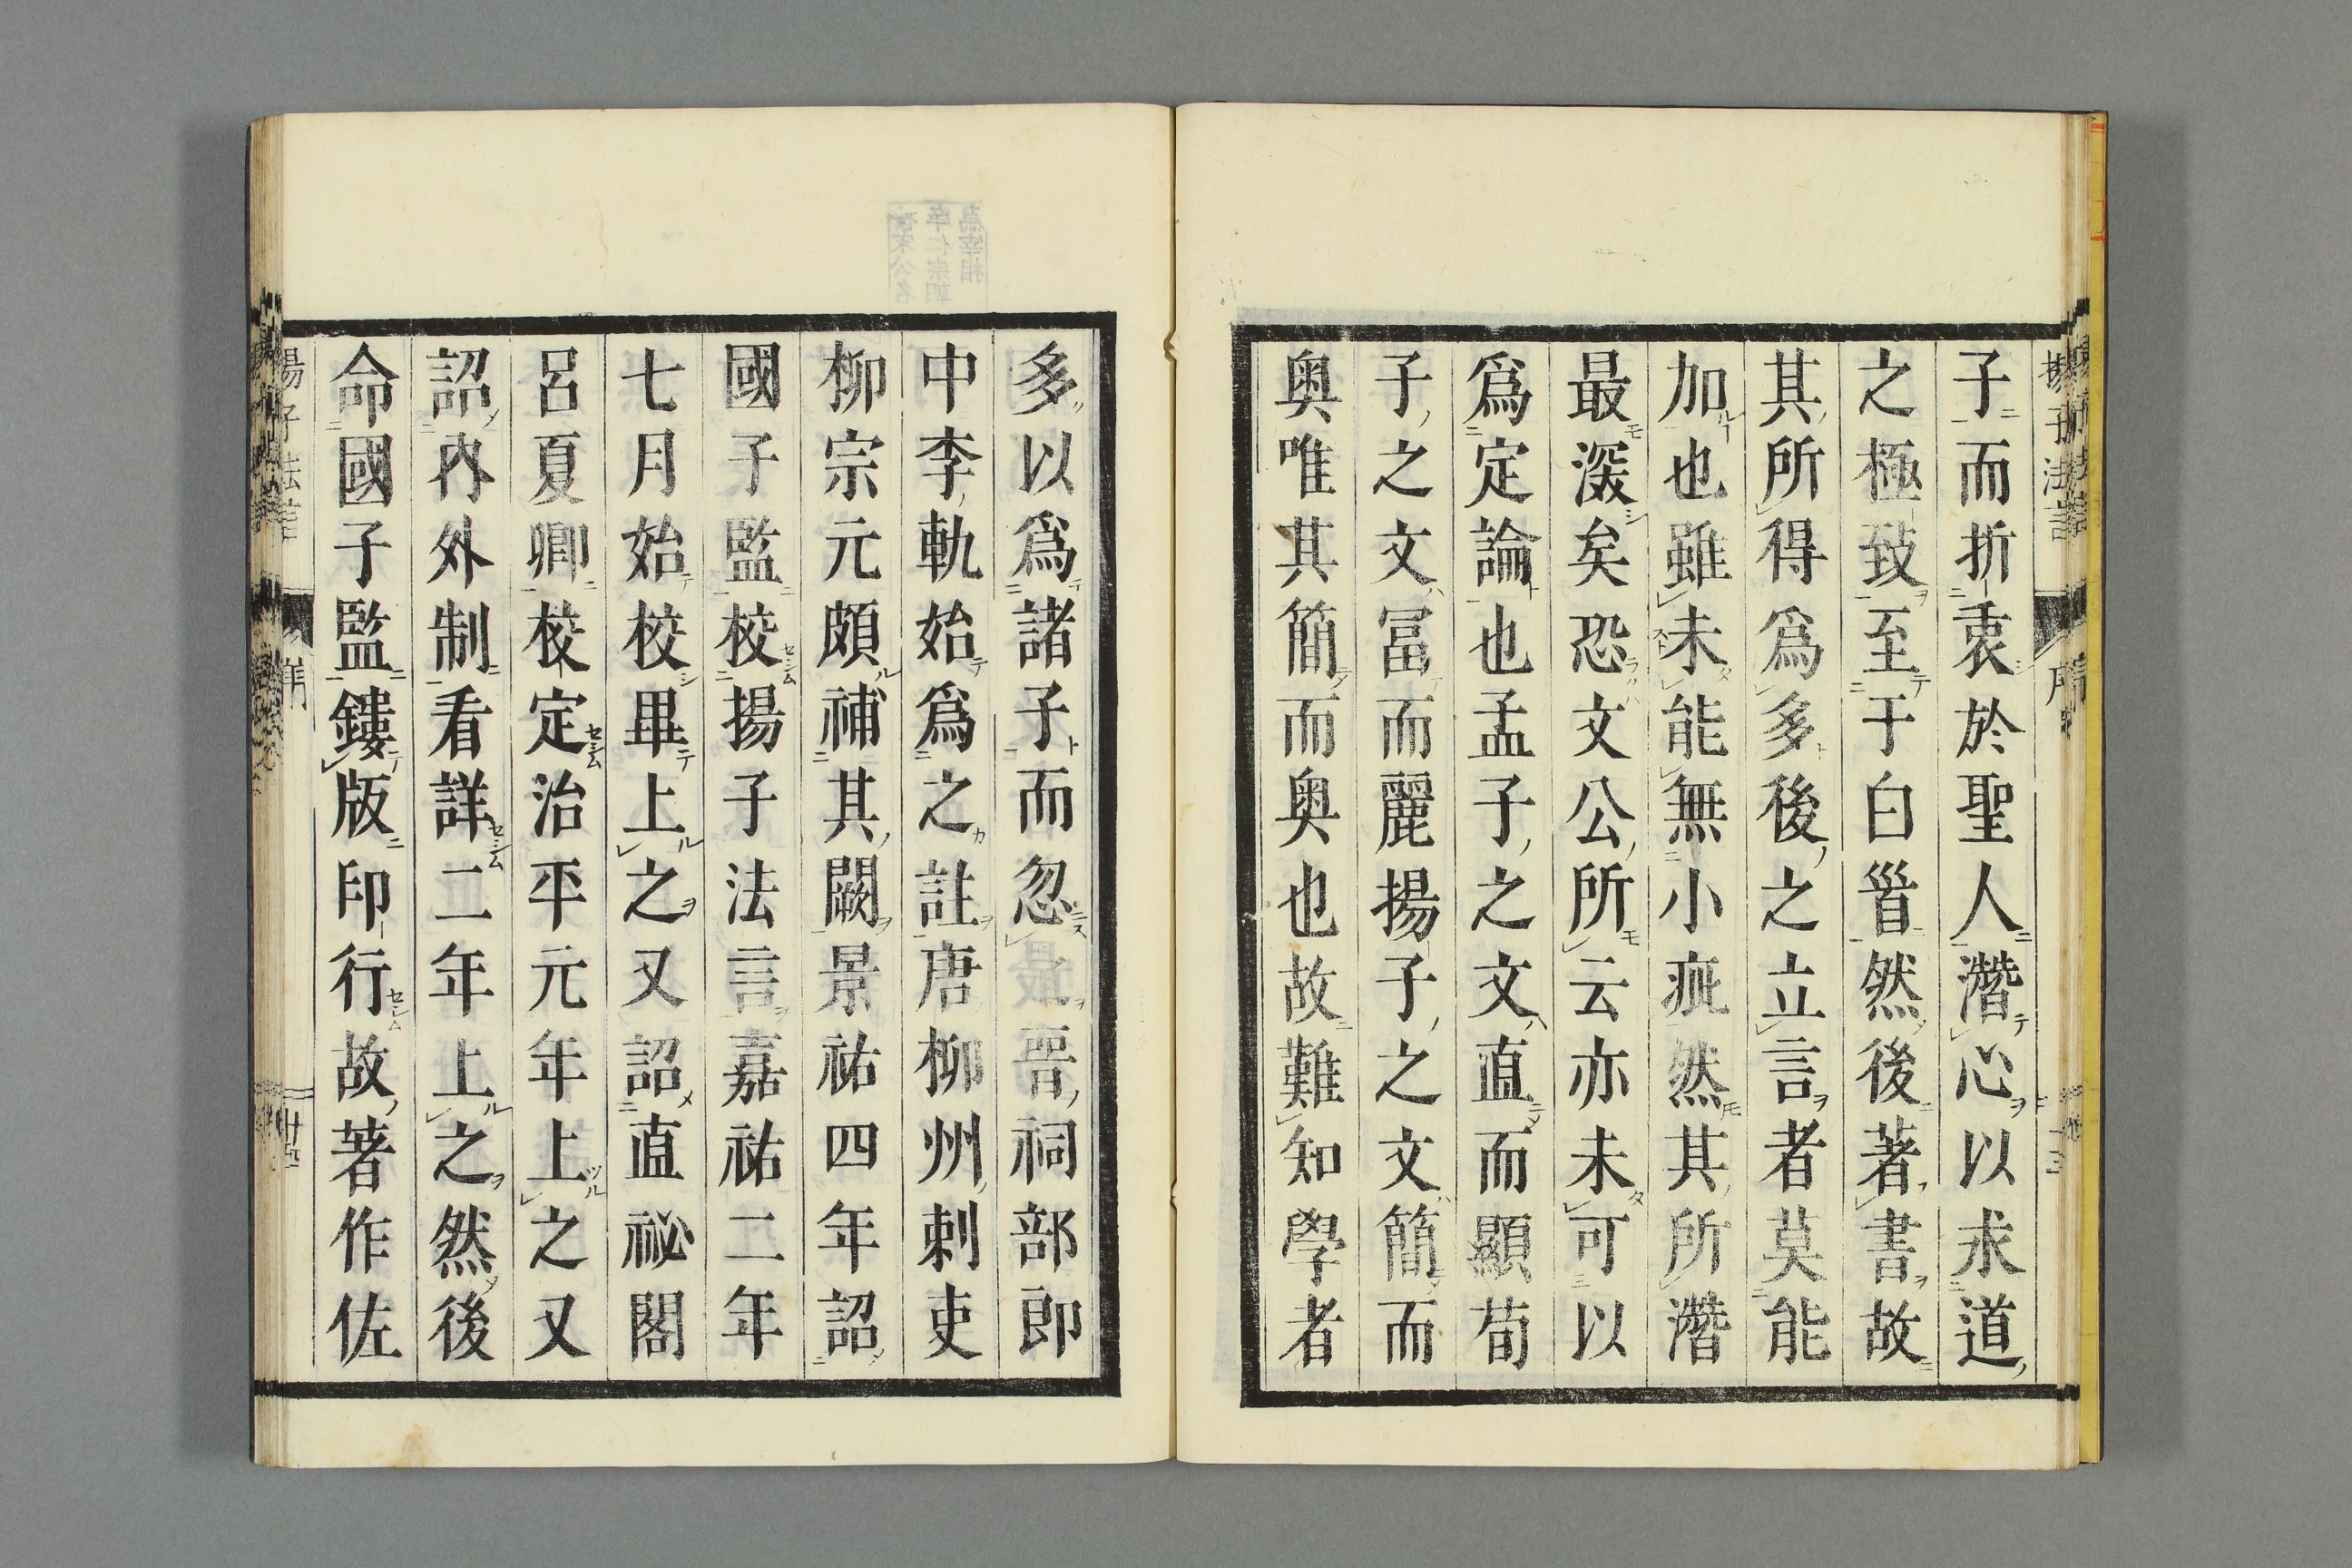 子而折衷於聖人潛心以求道
之極致至于白首然後著書故
其所得爲多後之立言者莫能
加也雖未能無小疵然其所潛
最深矣恐文公所云亦未可以
爲定論也孟子之文直而顯荀
子之文富而麗揚子之文簡而
奥唯其簡而奥也故難知學者
多以爲諸子而忽最晋祠部郎
中李軌始爲之註唐柳州刺吏
柳宗元頗補其闕景祐四年詔
國子監校揚子法言嘉祐二年
七月始校畢上之又詔直祕閣
呂夏卿校定治平元年上之又
詔内外制看詳二年上之然後
命國子監鏤版印行故著作佐